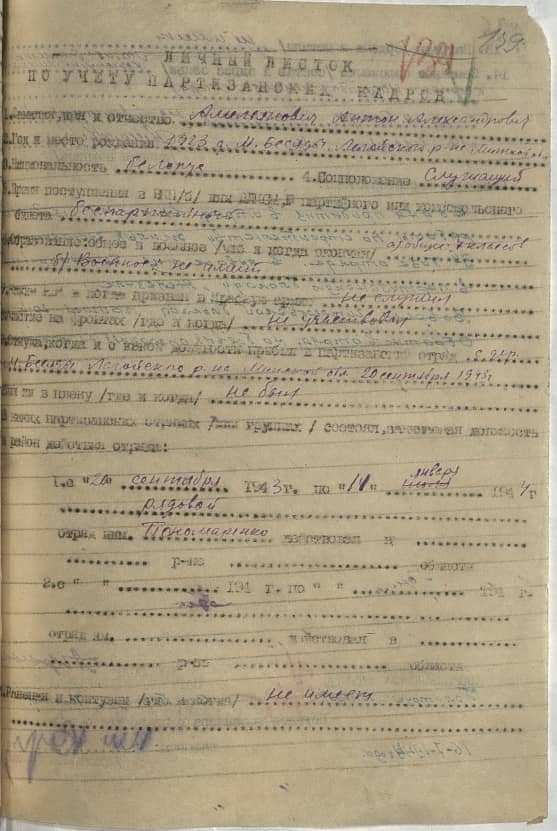 139
ЛИЧНЫЙ ЛИСТОК
ПО УЧЕТУ ПАРТИЗАНСКИХ КАДРОВ
1.Фамилия,имя и отчество Амельянович Антон Александрович
2.Год и место рождения 1923 г. М. Бесяды Логойского р-на Минской о.
3.Национальность Белорус 4.Соцположение Служащий
5.Время поступления в ВКП/б/ или ВЛКСМ, № партийного или комсомольского
билета беспартийный
6.Образование:общее и военное /что и когда окончил/ а) общее классов
б) Военное не имеет
когда призван в Красную армию не служил
Участие на фронтах /где и когда/ не участвовал
Откуда,когда и с какой должности прибыл в партизанский отряд с
М. Бесяды Логойского р-на Минской обл. 20 сентября 1943 г.
Был ли в плену /где и когда/ не был
В каких партизанских отрядах /или группах/ состоял, должность
и район действия отряда:
1.с "20" сентября 1943г. по "14" января 1944
рядовой
отряд им. Пономаренко действовал в
р-не области
2.с " " 194 г. по " " 194 г.
отряд им. действовал в
р-не области
Ранения и контузии /где и когда/ не имеет